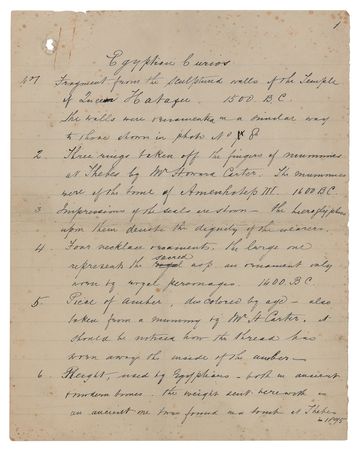 1
Egyptian Curios
No 1 Fragment from the sculptured walls of the Temple
of Queen Hatasu. 1500. B.C.
The walls were ornamented in a similar way
to those shown in photo No 8
2. Three rings taken off the fingers of mummies
at Thebes by Mr Howard Carter. The mummies
were of the time of Amenhotep III. 1600 B.C.
3 Impressions of the seals are shown – the hieroglyphics
upon them denote the dignity of the wearers.
4. Four necklace ornaments, the large one
represents the sacred asp an ornament only
worn by royal personages. 1600. B.C.
5 Piece of amber, discolored by age – also
taken from a mummy by Mr H Carter. it
should be noticed how the thread has
worn away the inside of the amber –
6. Weight, used by Egyptians – both in ancient
& modern times. the weight sent herewith is
an ancient one & was found in a tomb at Thebes
in 1895